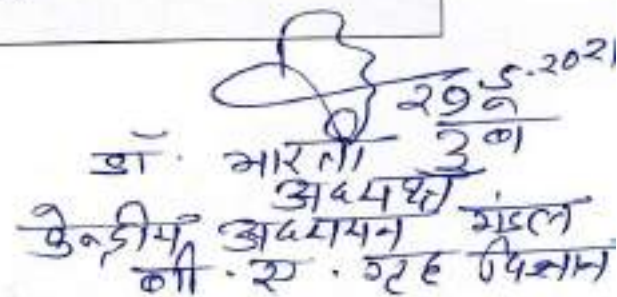 29.5.2021
डॉ. भारती दुबे
अध्यक्ष
केन्द्रीय अध्ययन मंडल
बी. ए. गृह विज्ञान